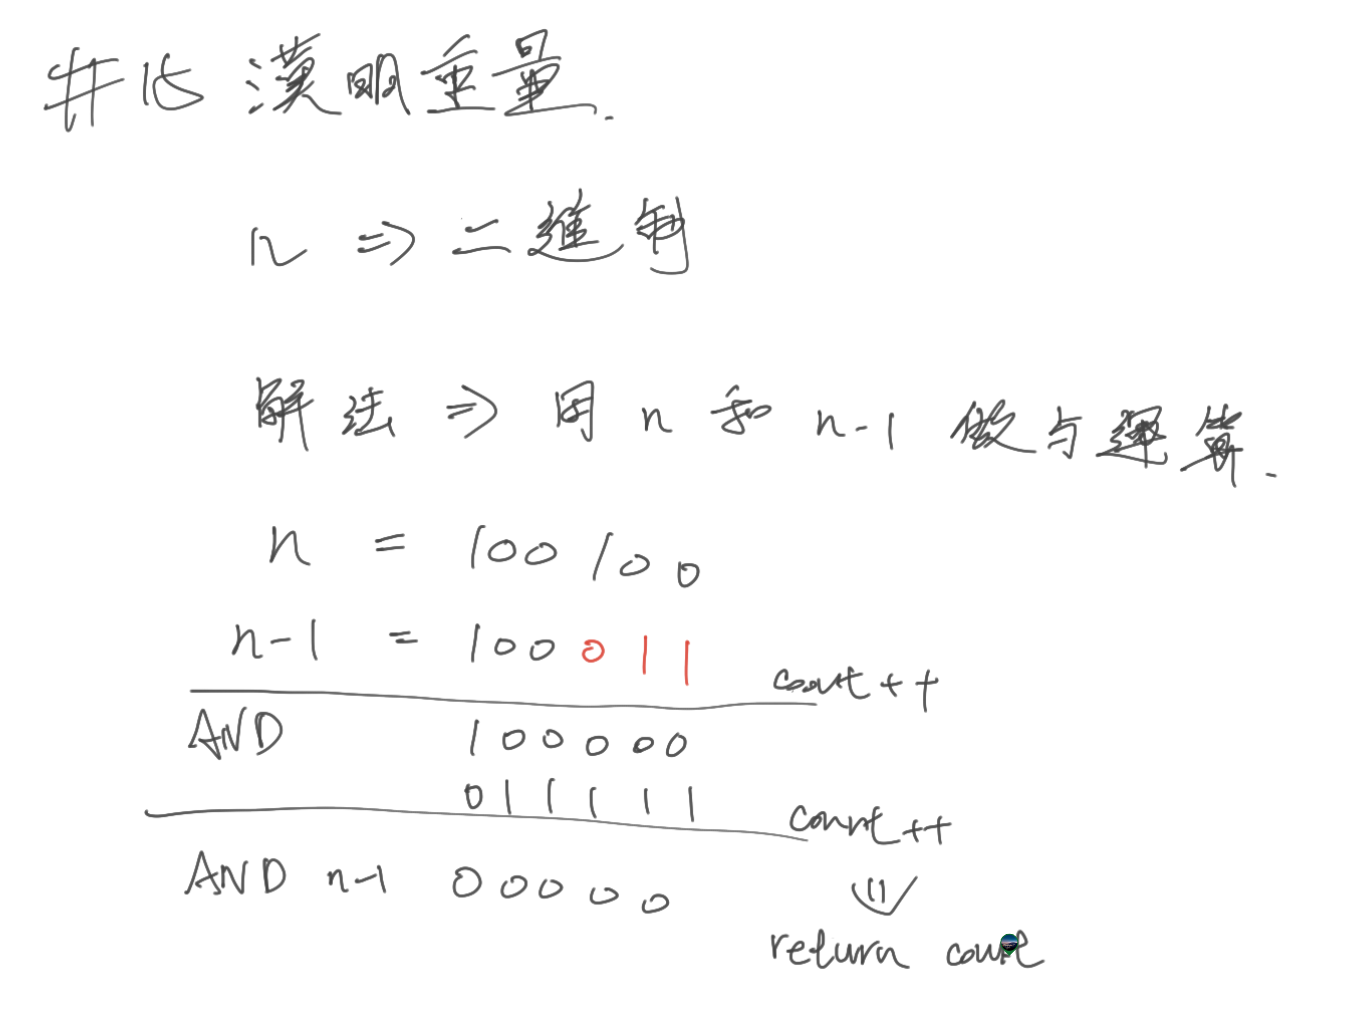 #15 漢明重量.
n ⇒ 二進制
解法 ⇒ 用 n 和 n-1 做与運算.
n = 100100
n-1 = 100011
count++
AND 100000
011111
count++
AND n-1 00000
return count